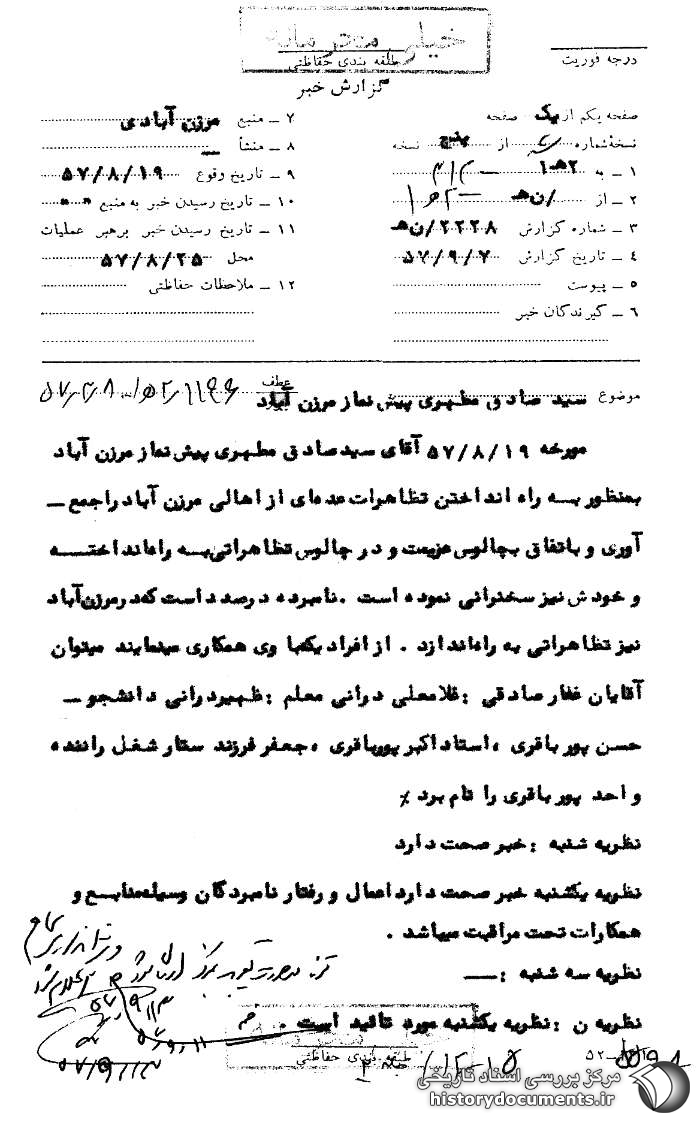 خیلی محرمانه
طبقه بندی حفاظتی
درجه فوریت
گزارش خبر
صفحه یکم از یک صفحه
نسخه شماره از پنج نسخه
۱ – به ۲هـ۱
۲ – از /ن هـ
۳ – شماره گزارش ۲۲۲۸/ن هـ
۴ – تاریخ گزارش ۵۷/۹/۷
۵ – پیوست
۶ – گیرندگان خبر
۷ – منبع مرزن آبادی
۸ – منشأ —
۹ – تاریخ وقوع ۵۷/۸/۱۹
۱۰ – تاریخ رسیدن خبر به منبع " "
۱۱ – تاریخ رسیدن خبر برهبر عملیات
محل ۵۷/۸/۲۵
۱۲ – ملاحظات حفاظتی
موضوع سید صادق مطهری پیش نماز مرزن آباد
عطف
مورخه ۵۷/۸/۱۹ آقای سیدصادق مطهری پیش نماز مرزن آباد
بمنظور به راه انداختن تظاهرات عده‌ای از اهالی مرزن آباد را جمع –
آوری و باتفاق بچالوس عزیمت و در چالوس تظاهراتی به راه‌انداختـه
و خودش نیز سخنرانی نموده است . نامبرده درصدد است که در مرزن آباد
نیز تظاهراتی به راه‌اندازد . از افراد یکه‌با وی همکاری مینمایند میتوان
آقایان غفار صادقی ؛ غلامعلی درانی معلم ؛ ظهیر درانی دانشجو –
حسن پور باقری ، استاد اکبر پورباقری ، جعفر فرزند ستار شغل راننده
و احد پور باقری را نام برد ٪
نظریه شنبه : خبر صحت دارد
نظریه یکشنبه خبر صحت دارد اعمال و رفتار نامبردگان وسیله منابع و
همکارات تحت مراقبت میباشد .
نظریه سه شنبه : —
نظریه ن : نظریه یکشنبه مورد تائید است .
طبقه بندی حفاظتی
مرکز بررسی اسناد تاریخی
historydocuments.ir